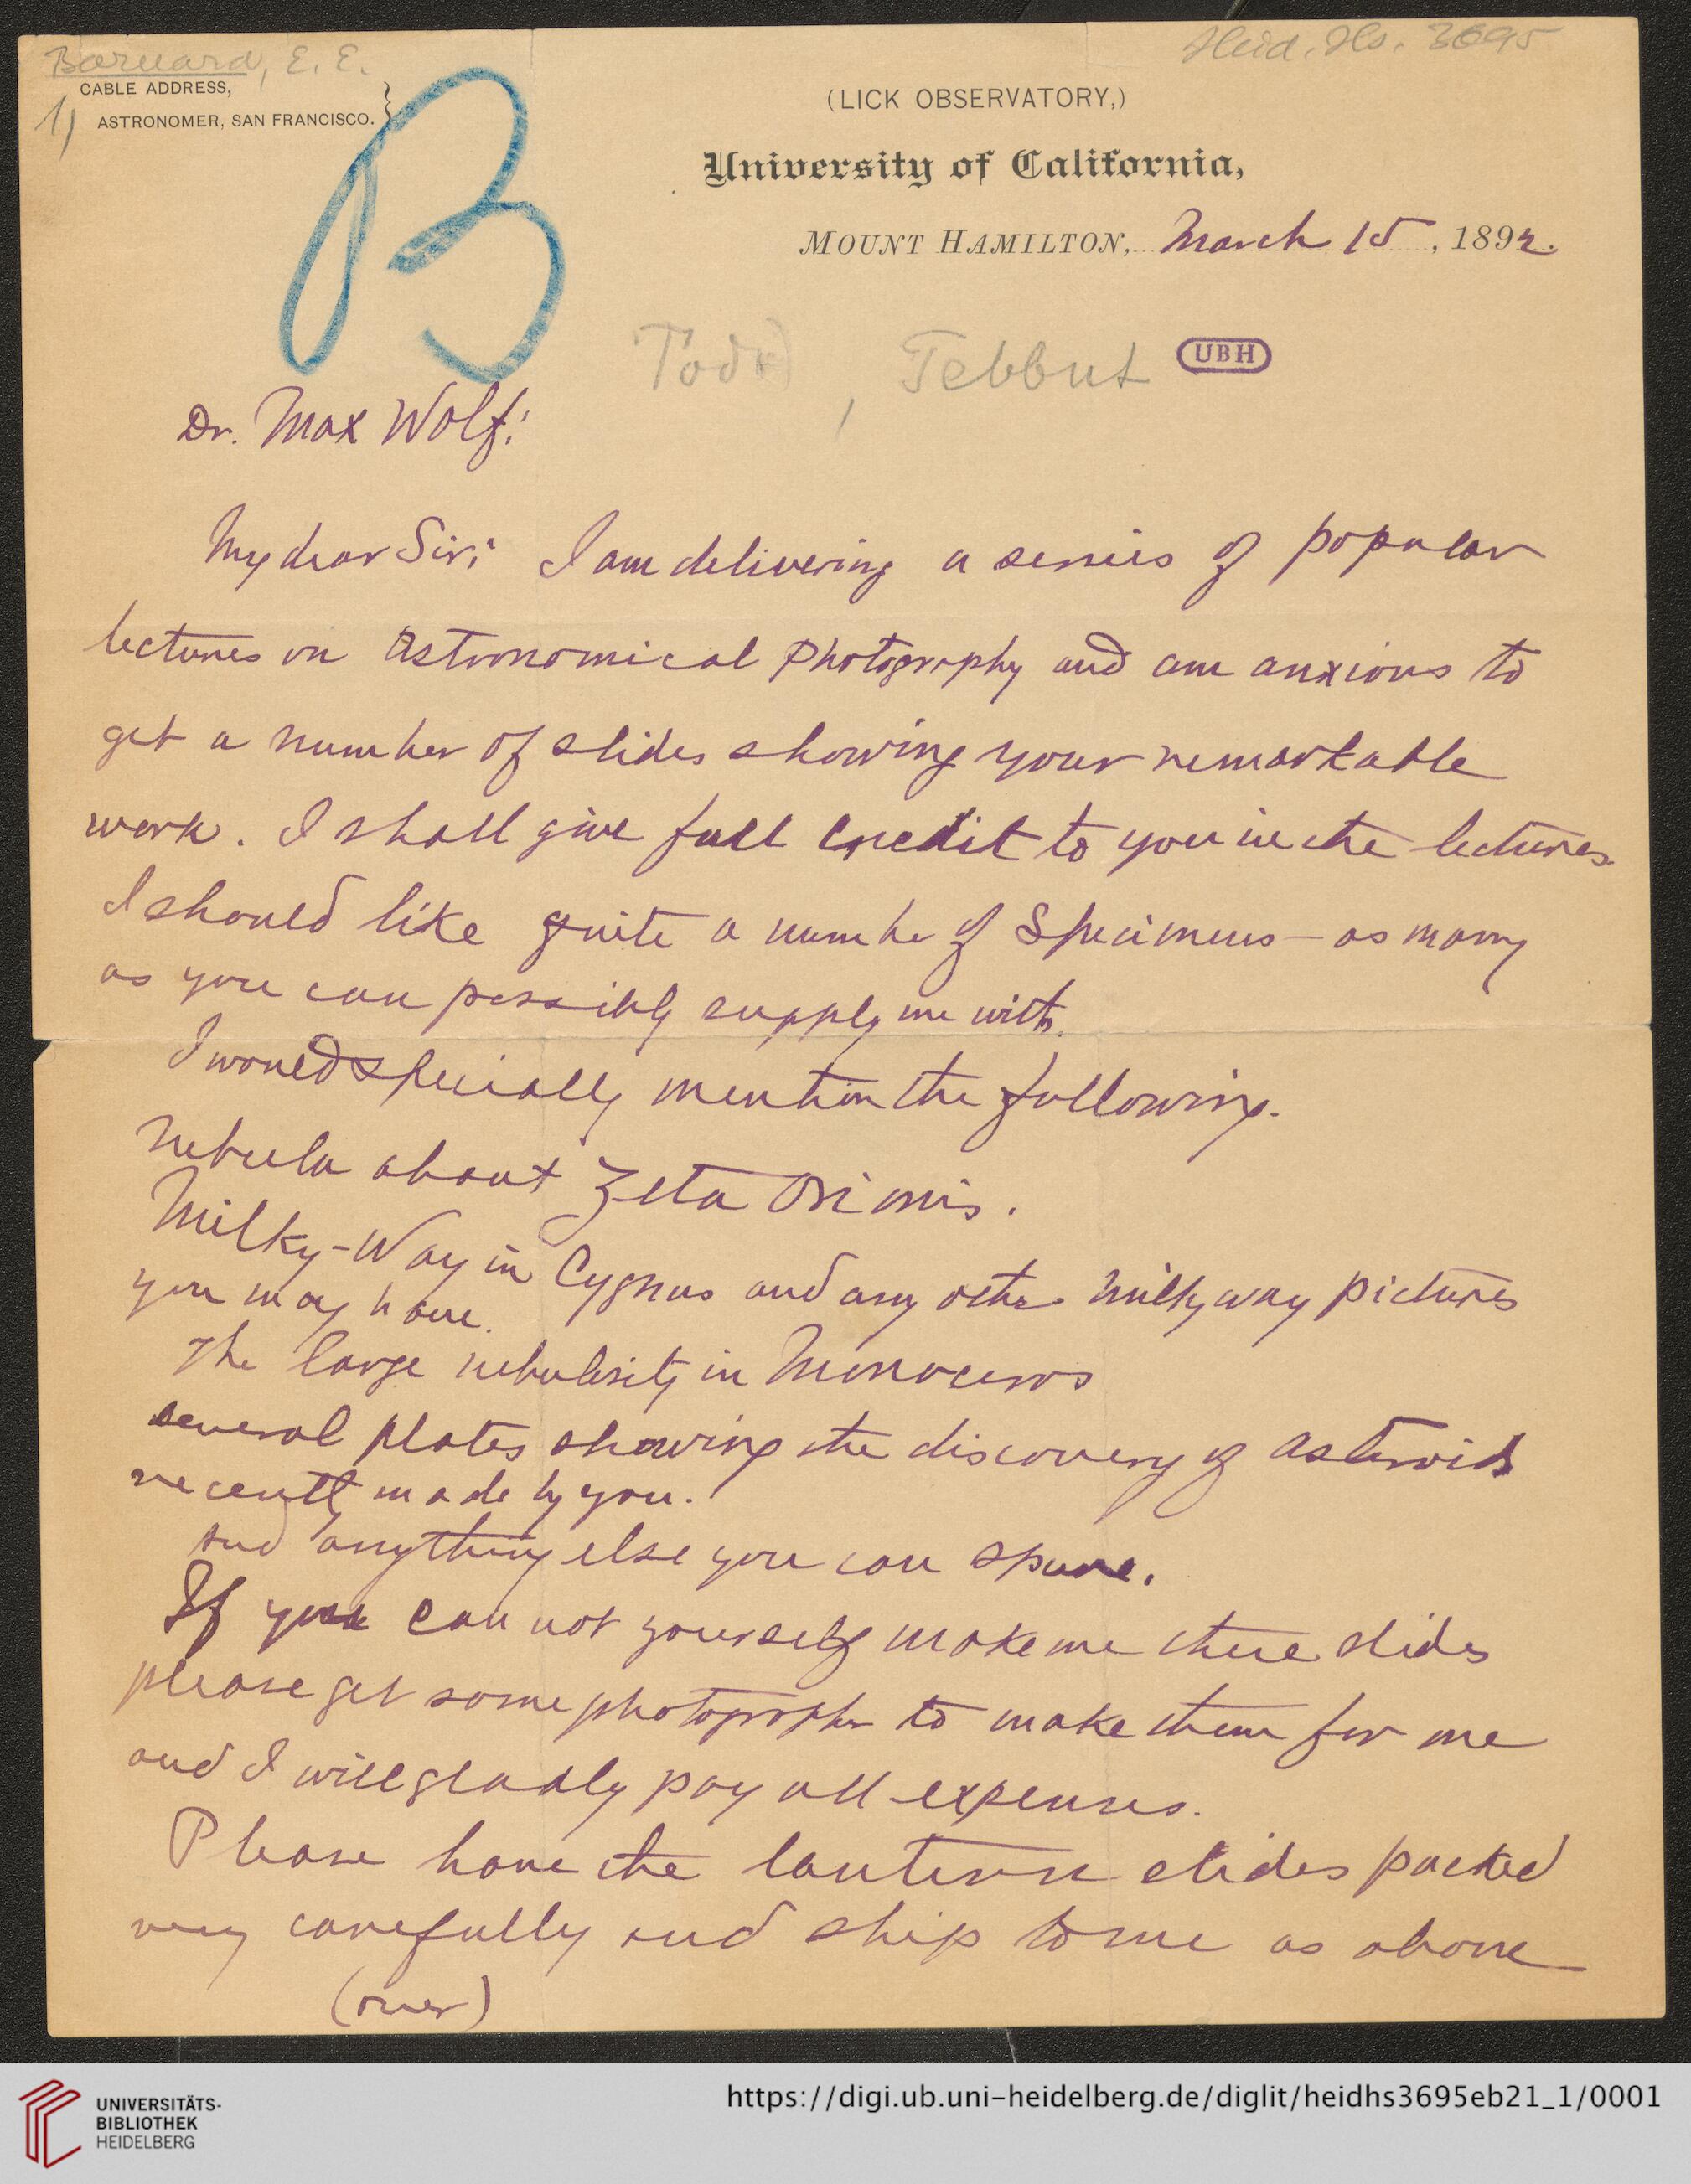 Barnard, E. E.
Heid. Hs. 3695
CABLE ADDRESS,
1)
ASTRONOMER, SAN FRANCISCO.
B
(LICK OBSERVATORY,)
University of California,
MOUNT HAMILTON, March 15, 1892.
Tebbut
UBH
Dr. Max Wolf:
My dear Sir: I am delivering a series of popular
lectures on Astronomical Photography and am anxious to
get a number of slides showing your remarkable
work. I shall give full credit to you in the lectures.
I should like quite a number of Specimens – as many
as you can possibly supply me with.
I would specially mention the following.
Nebula about Zeta Orionis.
Milky-Way in Cygnus and any other milky way pictures
you may have.
The large nebulosity in Monoceros
several plates showing the discovery of asteroids
recently made by you.
And anything else you can spare.
If you can not yourself make me these slides
please get some photographer to make them for me
and I will gladly pay all expenses.
Please have the lantern slides packed
very carefully and ship to me as above
(over)
UNIVERSITÄTS-
BIBLIOTHEK
HEIDELBERG
https://digi.ub.uni-heidelberg.de/diglit/heidhs3695eb21_1/0001